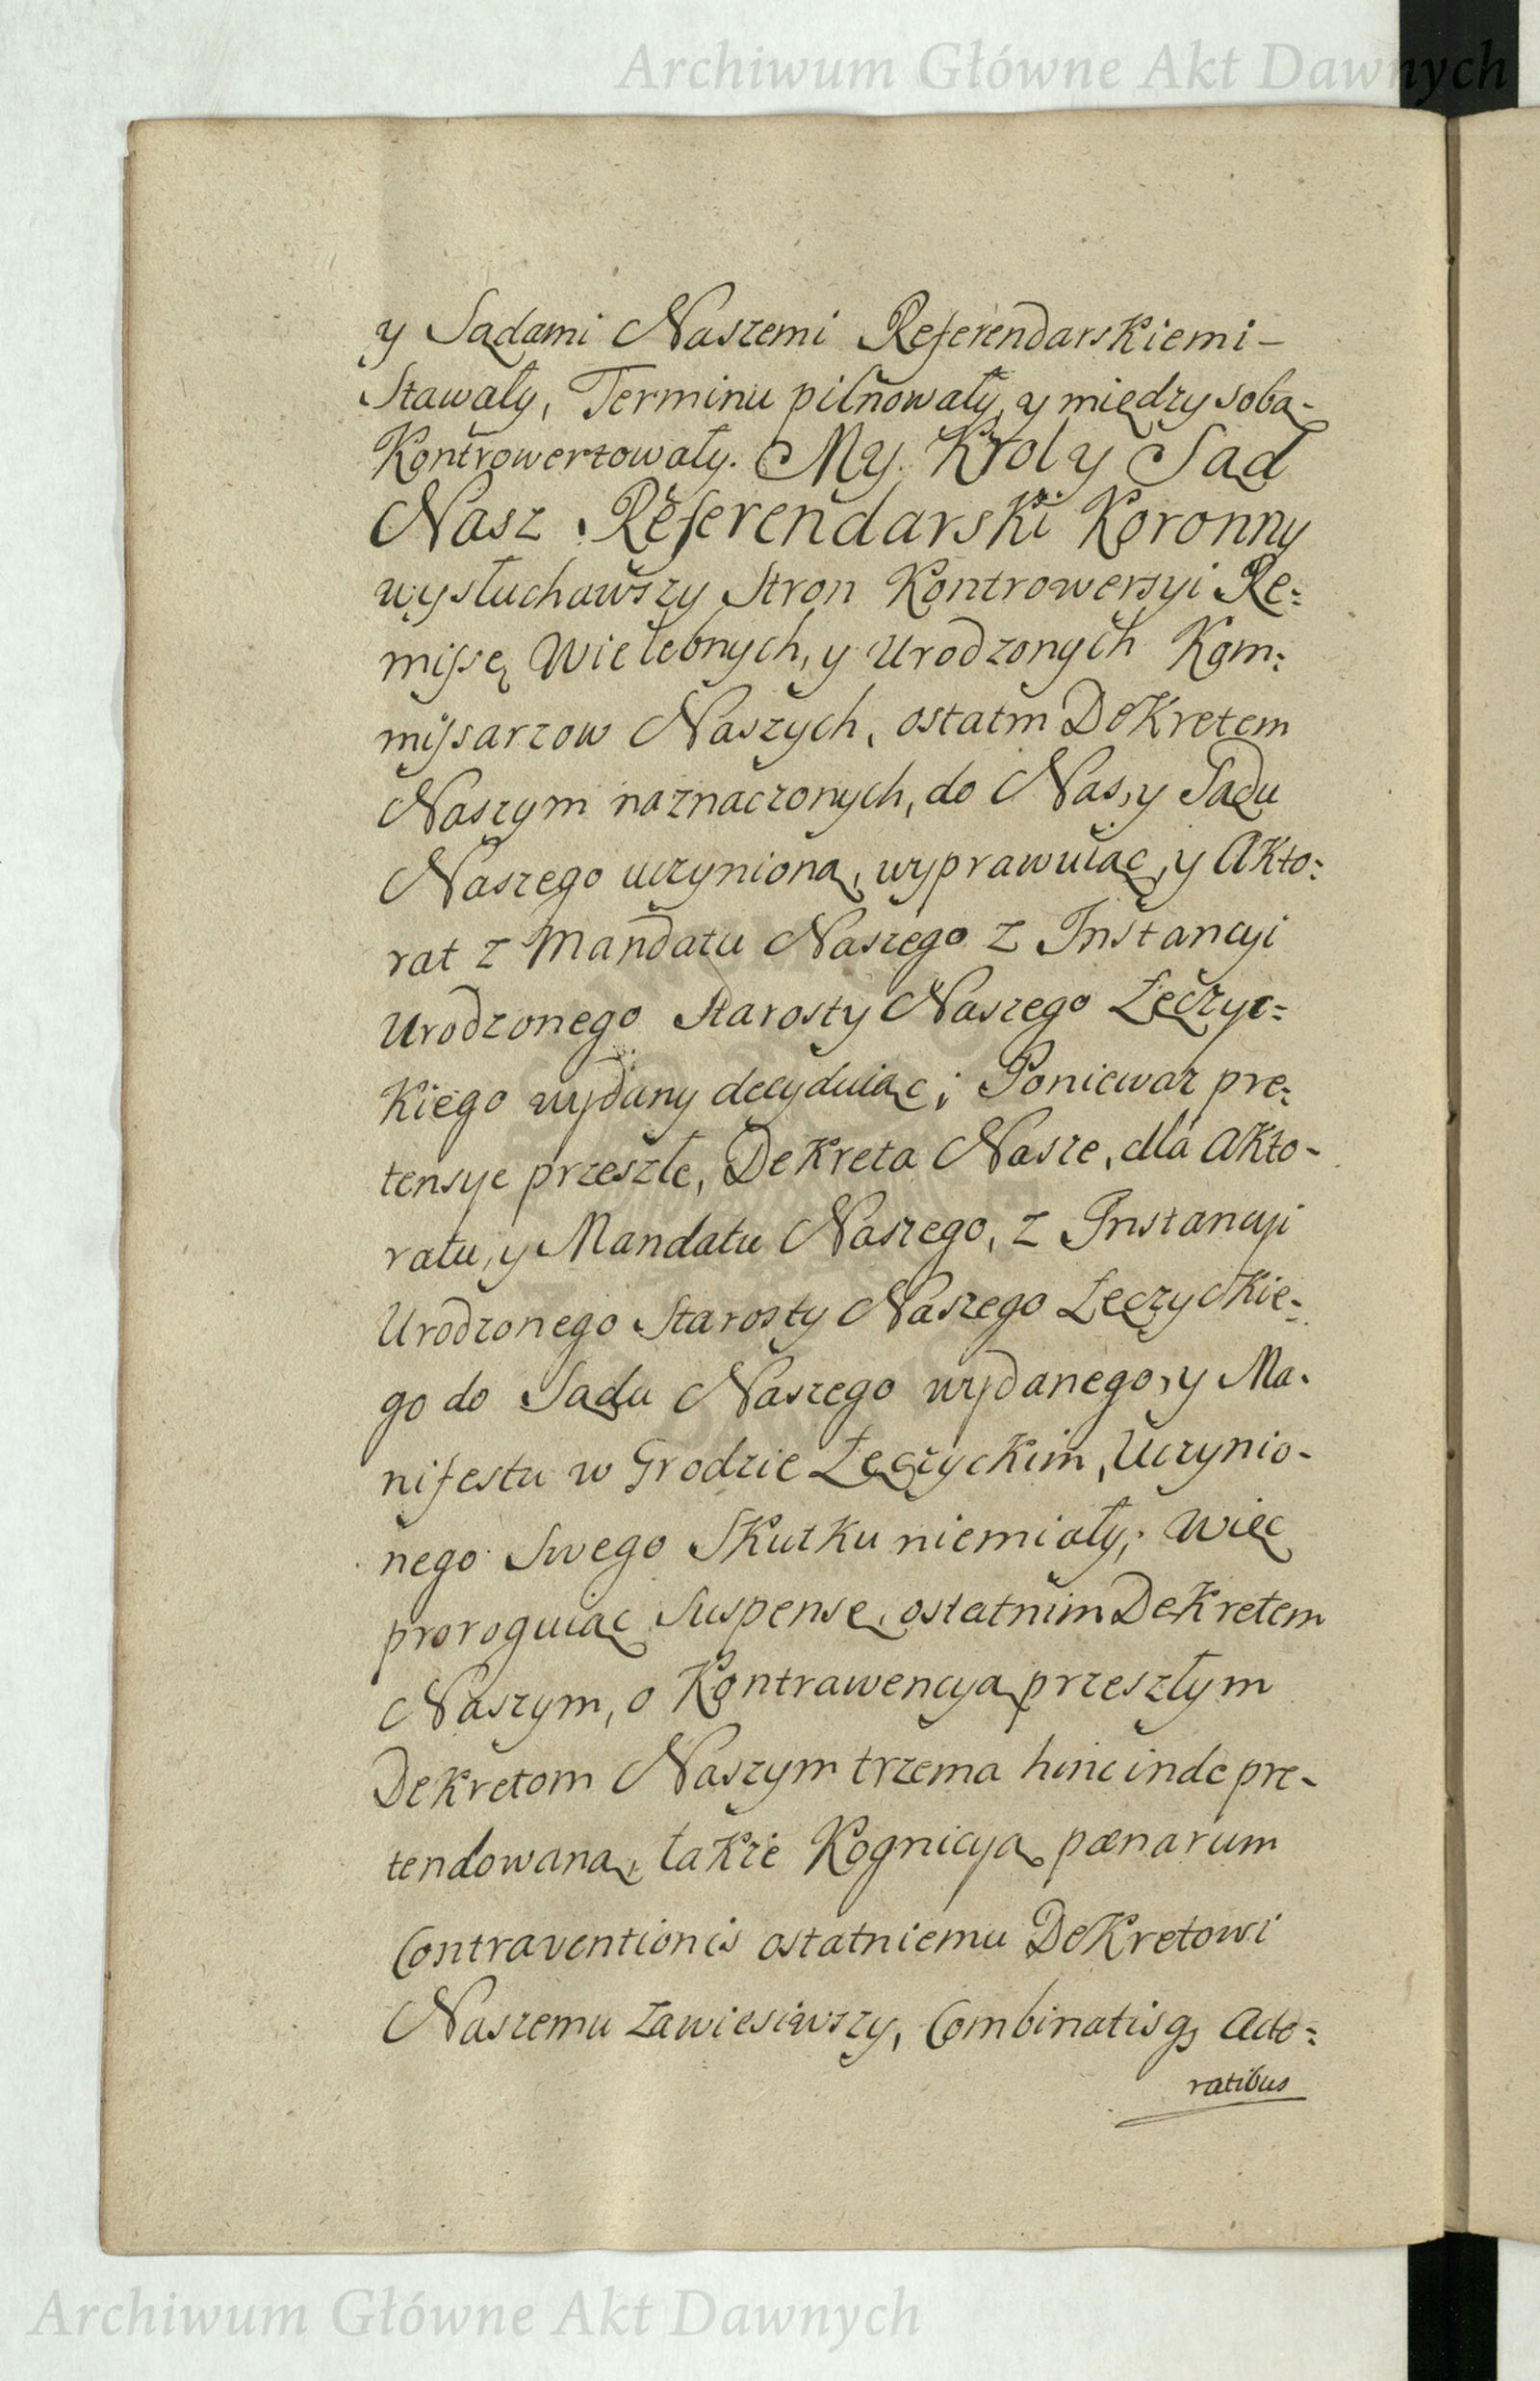 Archiwum Główne Akt Dawnych
y Sądami Naszemi Referendarskiemi –
Stawały, Terminu pilnowały, y między sobą -
Kontrowertowały. My Krol y Sąd
Nasz Referendarski Koronny
wysłuchawszy Stron Kontrowersyi Re=
missę Wielebnych, y Urodzonych Kom=
missarzow Naszych, ostatm DeKretem
Naszym naznaczonych, do Nas, y Sądu
Naszego uczynioną, wyprawuiąc, y AKto=
rat z Mandatu Naszego z Instancyi
Urodzonego Starosty Naszego Łęczyc=
Kiego wydany decyduiąc; Poniewaz pre=
tensye przeszłe, DeKreta Nasze, dla AKto-
ratu, y Mandatu Naszego, z Instancyi
Urodzonego Starosty Naszego Łęczyckie-
go do Sądu Naszego wydanego, y Ma-
nifestu w Grodzie Łęczyckim, Uczynio-
nego Swego SKutKu niemiały; Więc
proroguiąc Suspensę, ostatnim DeKretem
Naszym, o Kontrawencyą przeszłym
DeKretom Naszym trzema hinc inde pre-
tendowaną, takze Kognicyą pœnarum
Contraventionis ostatniemu DeKretowi
Naszemu zawiesiwszy, Combinatisq3 Acto=
ratibus
Archiwum Główne Akt Dawnych